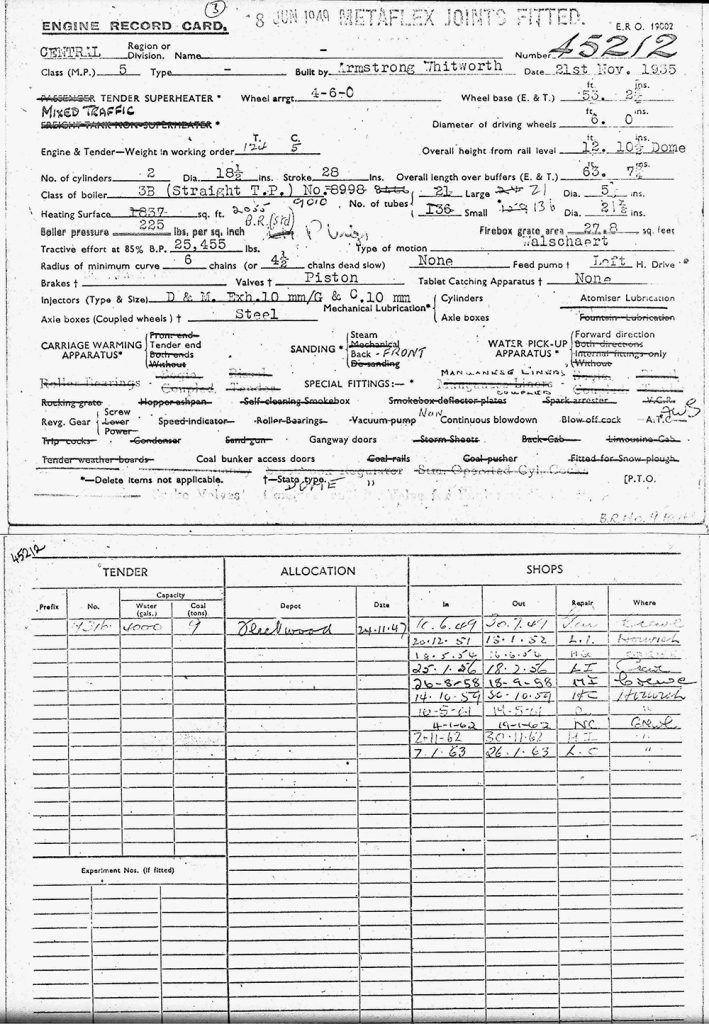 ENGINE RECORD CARD. 3 8 JUN 1949 METAFLEX JOINTS FITTED. E.R.O. 19002
CENTRAL Region or Division. Name - Number 45212
Class (M.P.) 5 Type - Built by Armstrong Whitworth Date 21st Nov. 1935
PASSENGER TENDER SUPERHEATER * Wheel arrgt. 4-6-0 Wheel base (E. & T.) 53. ft. 2¾ ins.
MIXED TRAFFIC
FREIGHT TANK NON-SUPERHEATER * Diameter of driving wheels 6. ft. 0 ins.
Engine & Tender—Weight in working order T. C. 5 Overall height from rail level 12. 10½ Dome
No. of cylinders 2 Dia. 18½ ins. Stroke 28 ins. Overall length over buffers (E. & T.) 63. ft. 7¾ ins.
Class of boiler 3B (Straight T.P.) No. 8998 No. of tubes 21 Large 21 Dia. 5 ins.
Heating Surface 1837 sq. ft. 2055 9010 136 Small 136 Dia. ins.
Boiler pressure 225 lbs. per sq. inch B.R. (Std) Firebox grate area 27.8 sq. feet
Tractive effort at 85% B.P. 25,455 lbs. Type of motion Walschaert
Radius of minimum curve 6 chains (or 4½ chains dead slow) None Feed pump † Left H. Drive *
Brakes † Valves † Piston Tablet Catching Apparatus † None
Injectors (Type & Size) D & M. Exh.10 mm/G & C.10 mm Mechanical Lubrication* Cylinders Atomiser Lubrication
Axle boxes (Coupled wheels) † Steel Axle boxes Fountain Lubrication
CARRIAGE WARMING APPARATUS* Front end Tender end Both ends Without
SANDING * Steam Mechanical Back - FRONT De-sanding
WATER PICK-UP APPARATUS * Forward direction Both directions Internal fittings only Without
MANGANESE LINERS
Roller Bearings Coupled Tender SPECIAL FITTINGS:— * Manganese Liners COUPLED
Rocking grate Hopper ashpan Self-cleaning Smokebox Smokebox deflector plates Spark arrester V.C.R.
Revg. Gear Screw Lever Power Speed indicator Roller Bearings Vacuum pump Non Continuous blowdown Blow off cock A.T.C. AWS
Trip cocks Condenser Sand gun Gangway doors Storm Sheets Back Cab Limousine Cab
Tender weather boards Coal bunker access doors Coal rails Coal pusher Fitted for Snow plough
Regulator Stm. Operated Cyl. Cocks
*—Delete items not applicable. †—State type. DOME [P.T.O.
45212
TENDER ALLOCATION SHOPS
Prefix No. Capacity Water (gals.) Coal (tons) Depot Date In Out Repair Where
9316 4000 9 Fleetwood 24.11.47 10.6.49 30.7.49 Crewe
20.12.51 15.1.52 L.I. Horwich
25.1.56 18.2.56 LI Crewe
26-8-58 18-9-58 HI Crewe
14.10.59 30.10.59 HC Horwich
10-5-61 19-5-61 "
4-1-62 19-1-62 NC Crewe
2-11-62 30.11.62 H.I "
7.1.63 26.1.63 L.C "
Experiment Nos. (if fitted)